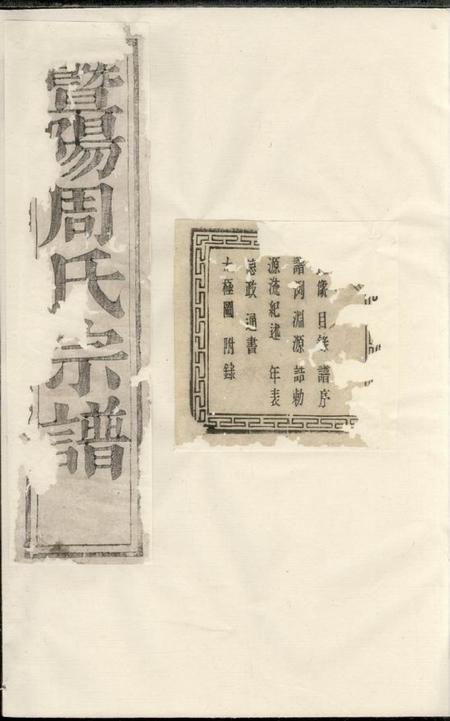 暨陽周氏宗譜
目錄 譜序
譜 淵源 誥勅
源流紀述 年表
政 通書
太極圖 附錄